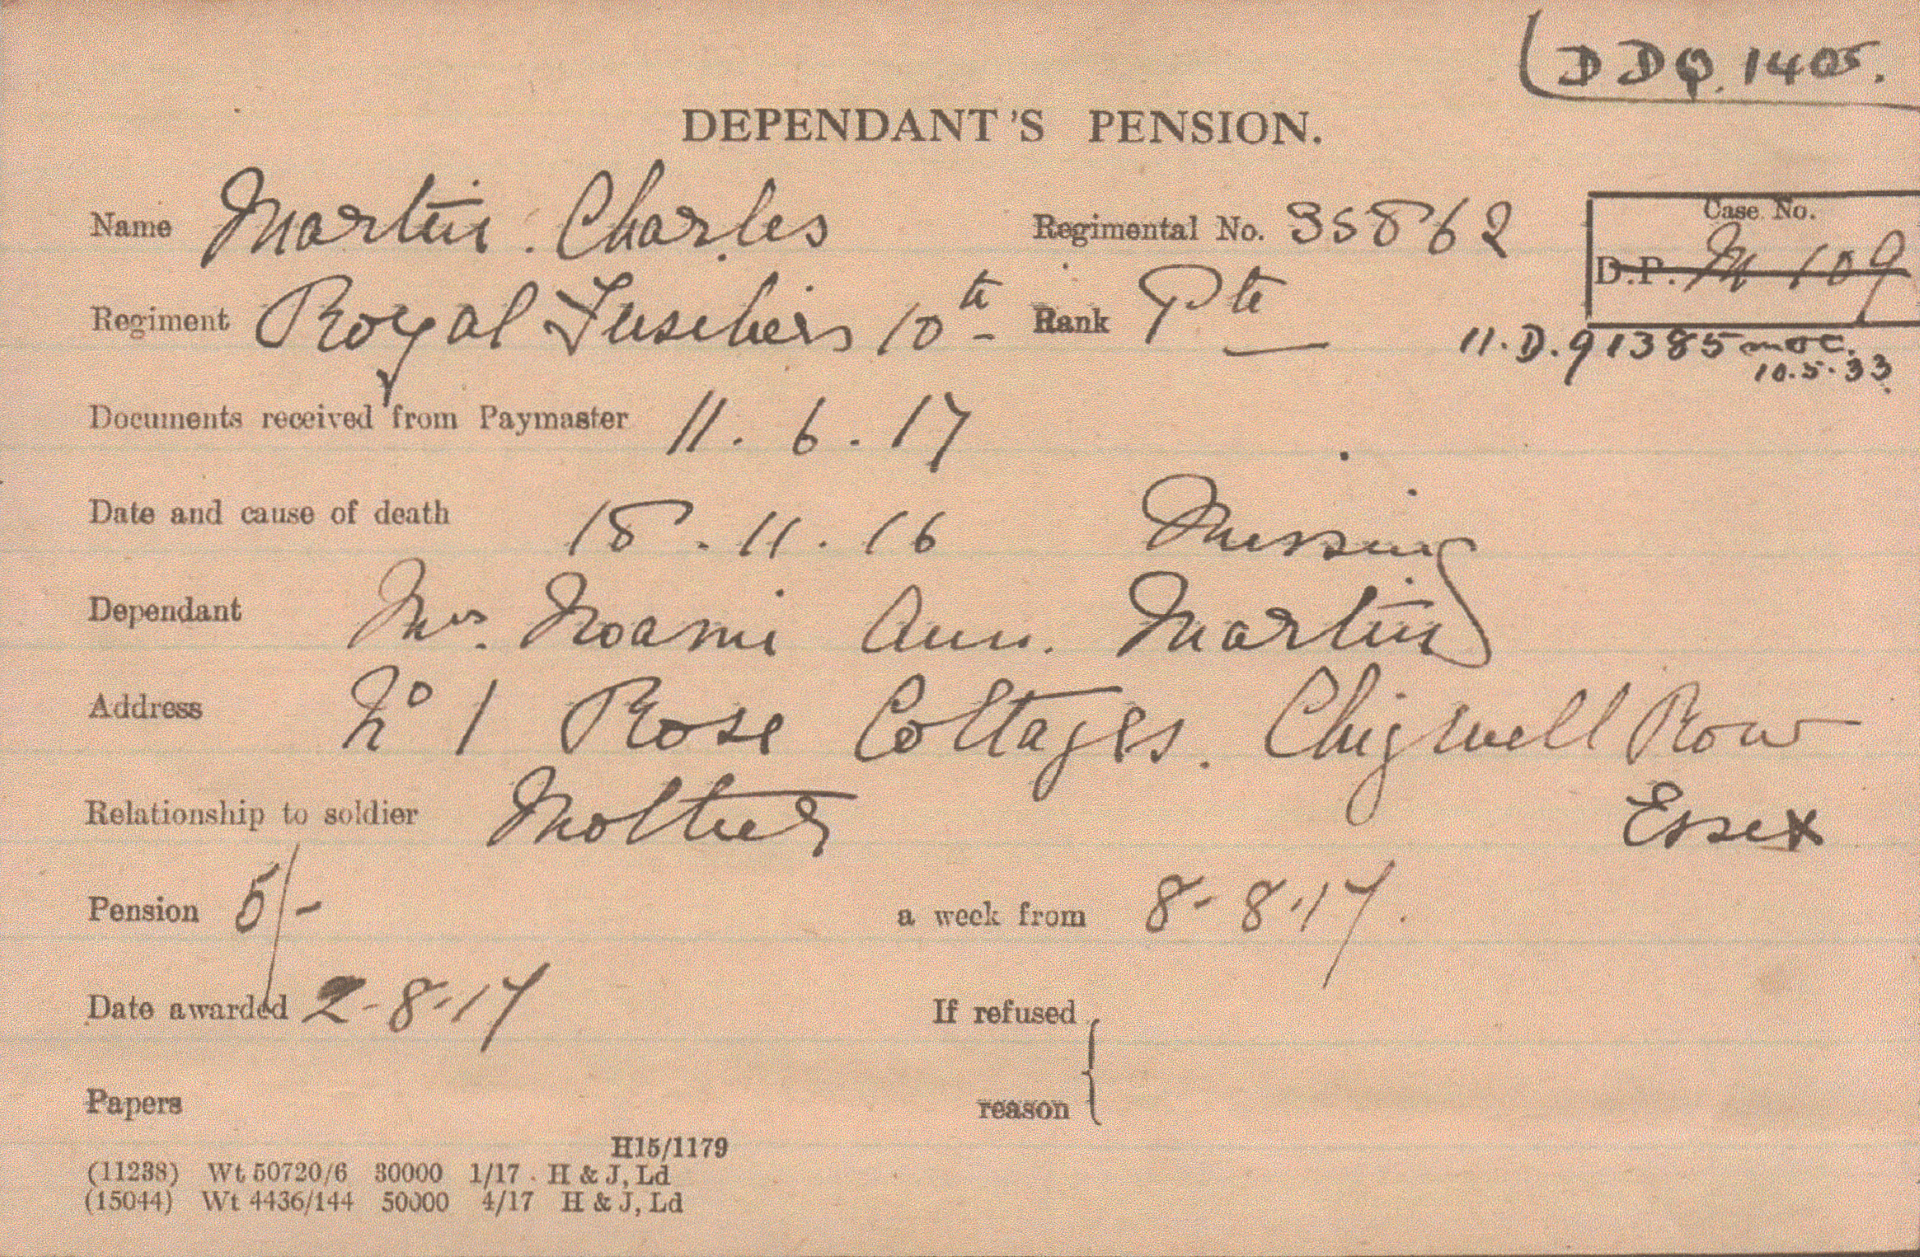 DDQ. 1405.
DEPENDANT'S PENSION.
Name Martin. Charles Regimental No. 35862 Case No.
D.P. M 109
Regiment Royal Fusiliers 10th Rank Pte
11.D.91385 MOC.
10.5.33
Documents received from Paymaster 11.6.17
Date and cause of death 18.11.16 Missing
Dependant Mrs. Noami Ann. Martin
Address No 1 Rose Cottages. Chigwell Row
Essex
Relationship to soldier Mother
Pension 5/- a week from 8-8-17.
Date awarded 2-8-17 If refused
Papers reason
H15/1179
(11238) Wt 50720/6 30000 1/17 H & J, Ld
(15044) Wt 4436/144 50000 4/17 H & J, Ld